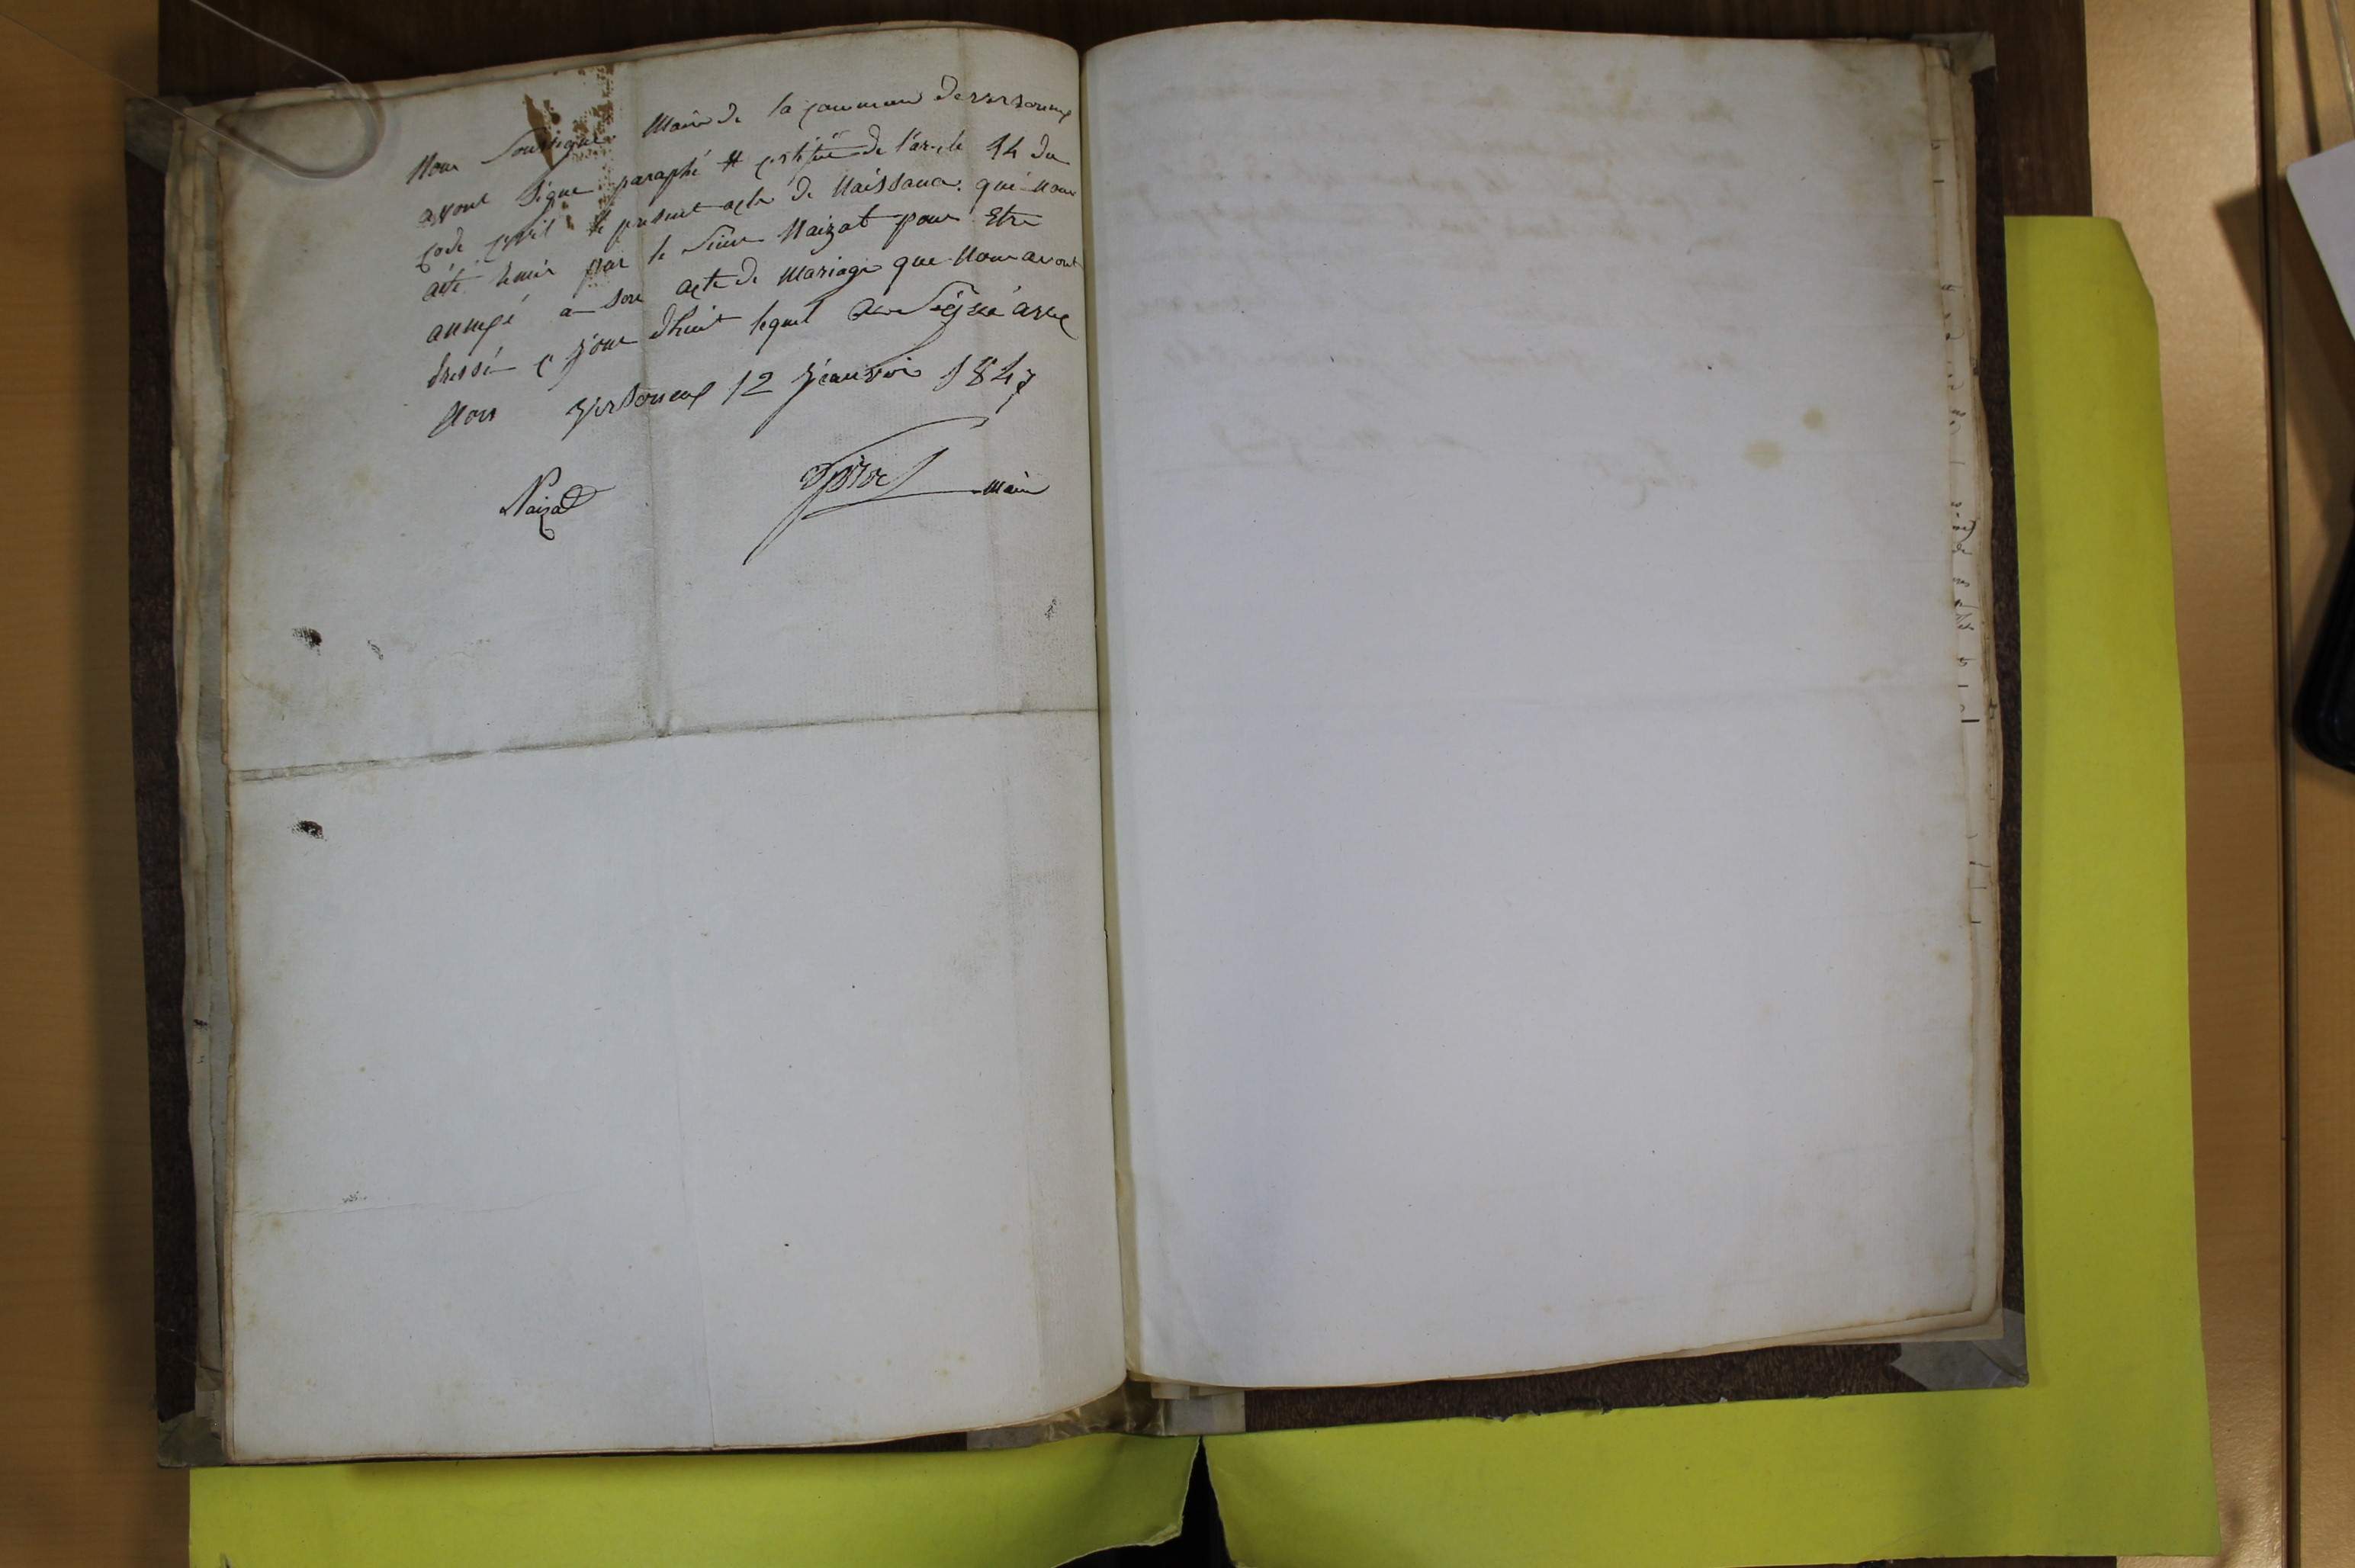 Nous Soussigné Maire de la commune de
avons Signé paraphé # certifiée de l'article 44 du
code civil le present acte de Naissance qui nous
aété remis par le Sieur Naizat pour Etre
annexé a son acte de Mariage que Nous avons
dressé ce jour dhuit lequel a Signé avec
Nous 12 janvier 1847
Naizat maire